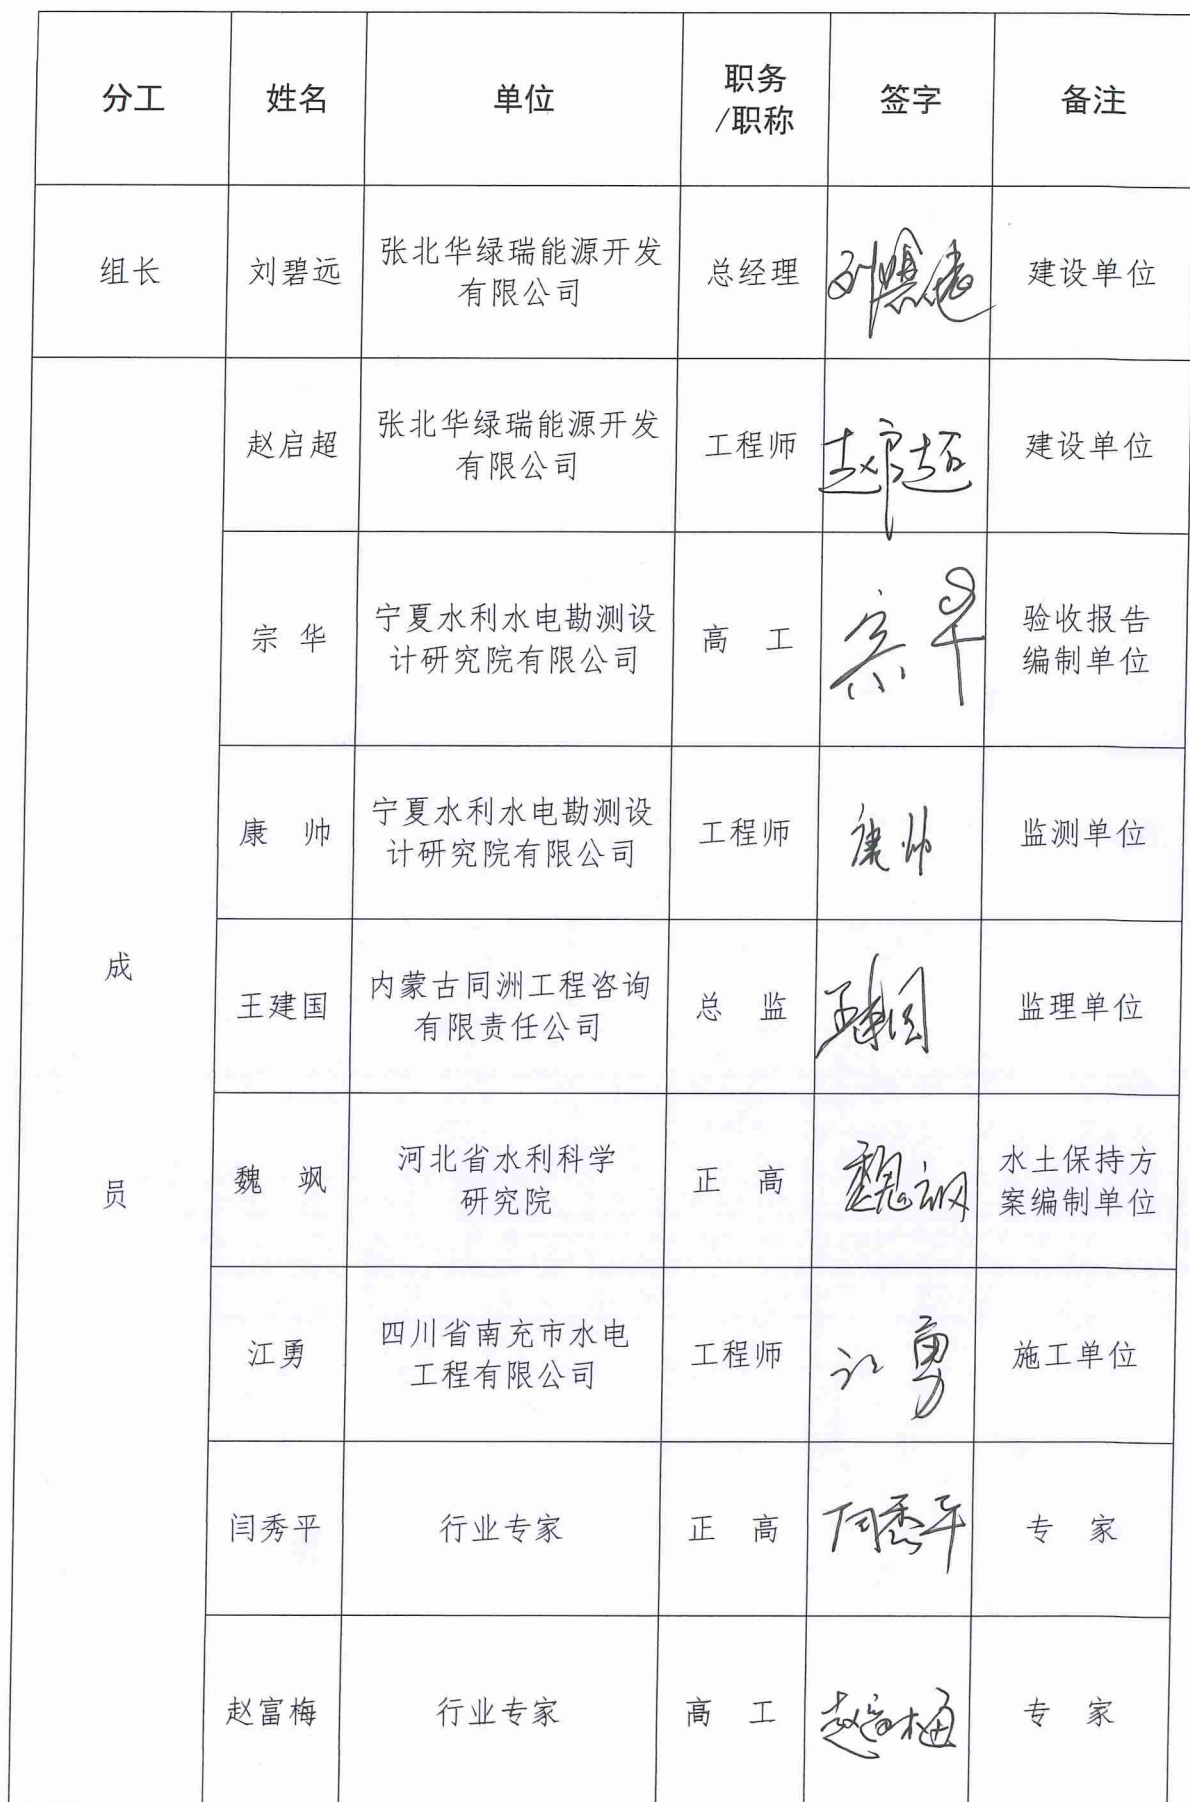 分工 姓名 单位 职务/职称 签字 备注
组长 刘碧远 张北华绿瑞能源开发有限公司 总经理 刘碧远 建设单位
成员
赵启超 张北华绿瑞能源开发有限公司 工程师 赵启超 建设单位
宗 华 宁夏水利水电勘测设计研究院有限公司 高 工 宗华 验收报告编制单位
康 帅 宁夏水利水电勘测设计研究院有限公司 工程师 康帅 监测单位
王建国 内蒙古同洲工程咨询有限责任公司 总 监 王建国 监理单位
魏 飒 河北省水利科学研究院 正 高 魏飒 水土保持方案编制单位
江勇 四川省南充市水电工程有限公司 工程师 江勇 施工单位
闫秀平 行业专家 正 高 闫秀平 专 家
赵富梅 行业专家 高 工 赵富梅 专 家